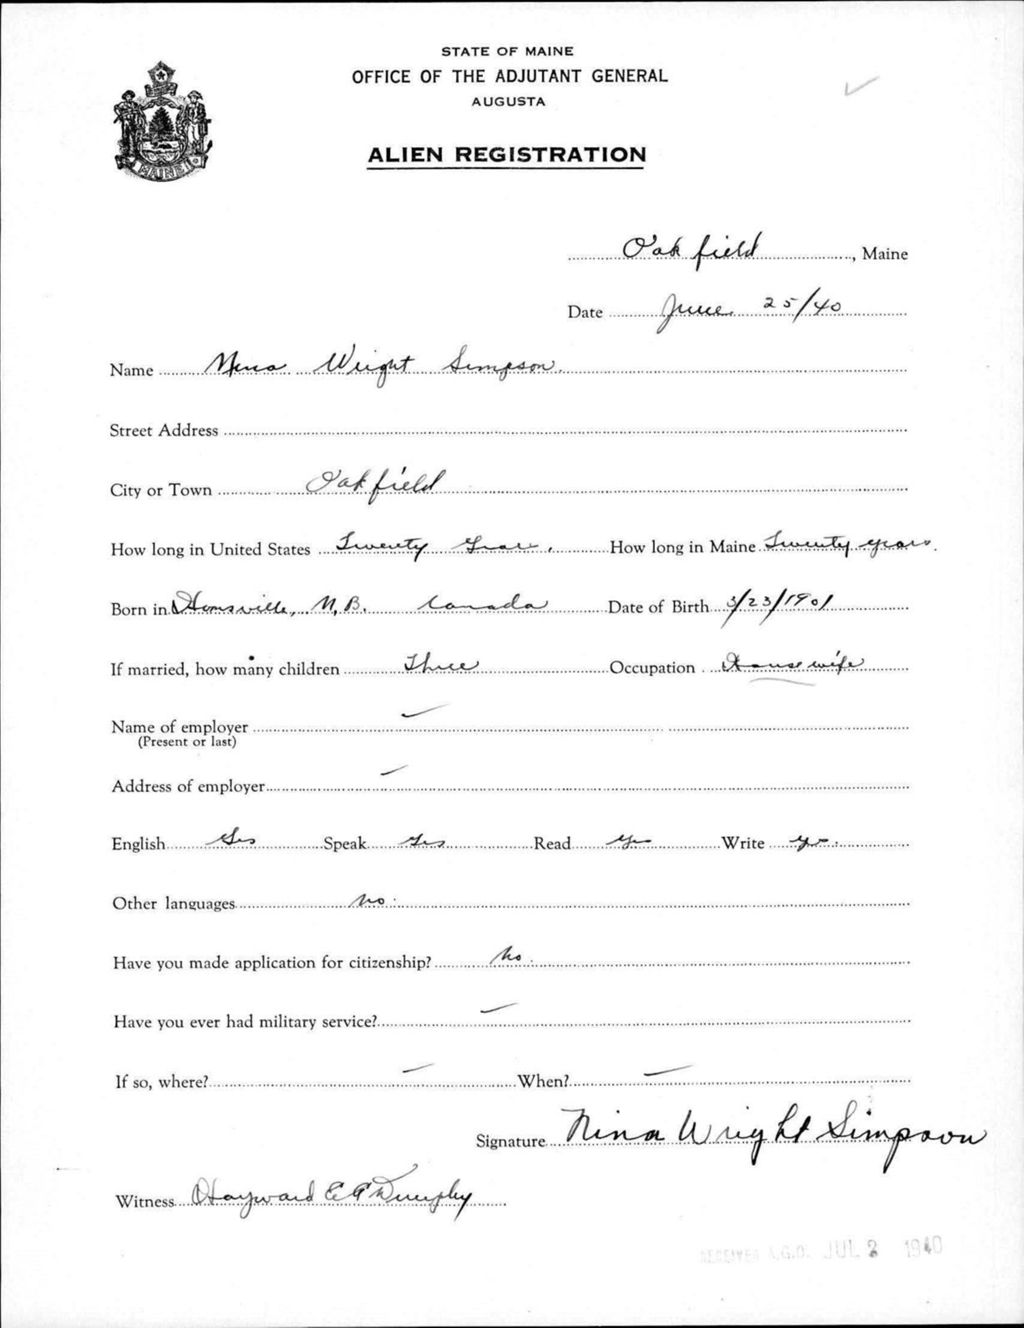 STATE OF MAINE
OFFICE OF THE ADJUTANT GENERAL
AUGUSTA
ALIEN REGISTRATION
MAINE
Oakfield, Maine
Date June 25/40
Name Nina Wright Simpson.
Street Address
City or Town Oakfield
How long in United States Twenty Years. How long in Maine Twenty years.
Born in N.B. Canada Date of Birth 3/23/1901
If married, how many children Three Occupation Housewife
Name of employer —
(Present or last)
Address of employer —
English Yes Speak Yes Read Yes Write yes.
Other languages no.
Have you made application for citizenship? No.
Have you ever had military service? —
If so, where? — When? —
Signature Nina Wright Simpson
Witness Hayward
RECEIVED A.G.O. JUL 2 1940